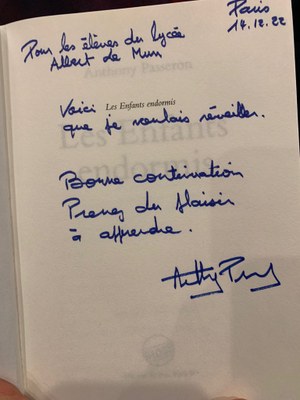 Paris
14.12.22
Pour les élèves du lycée
Albert de Mun
Anthony Passeron
Voici Les Enfants endormis
que je voulais réveiller.
Les Enfants
endormis
Bonne continuation
Prenez du plaisir
à apprendre.